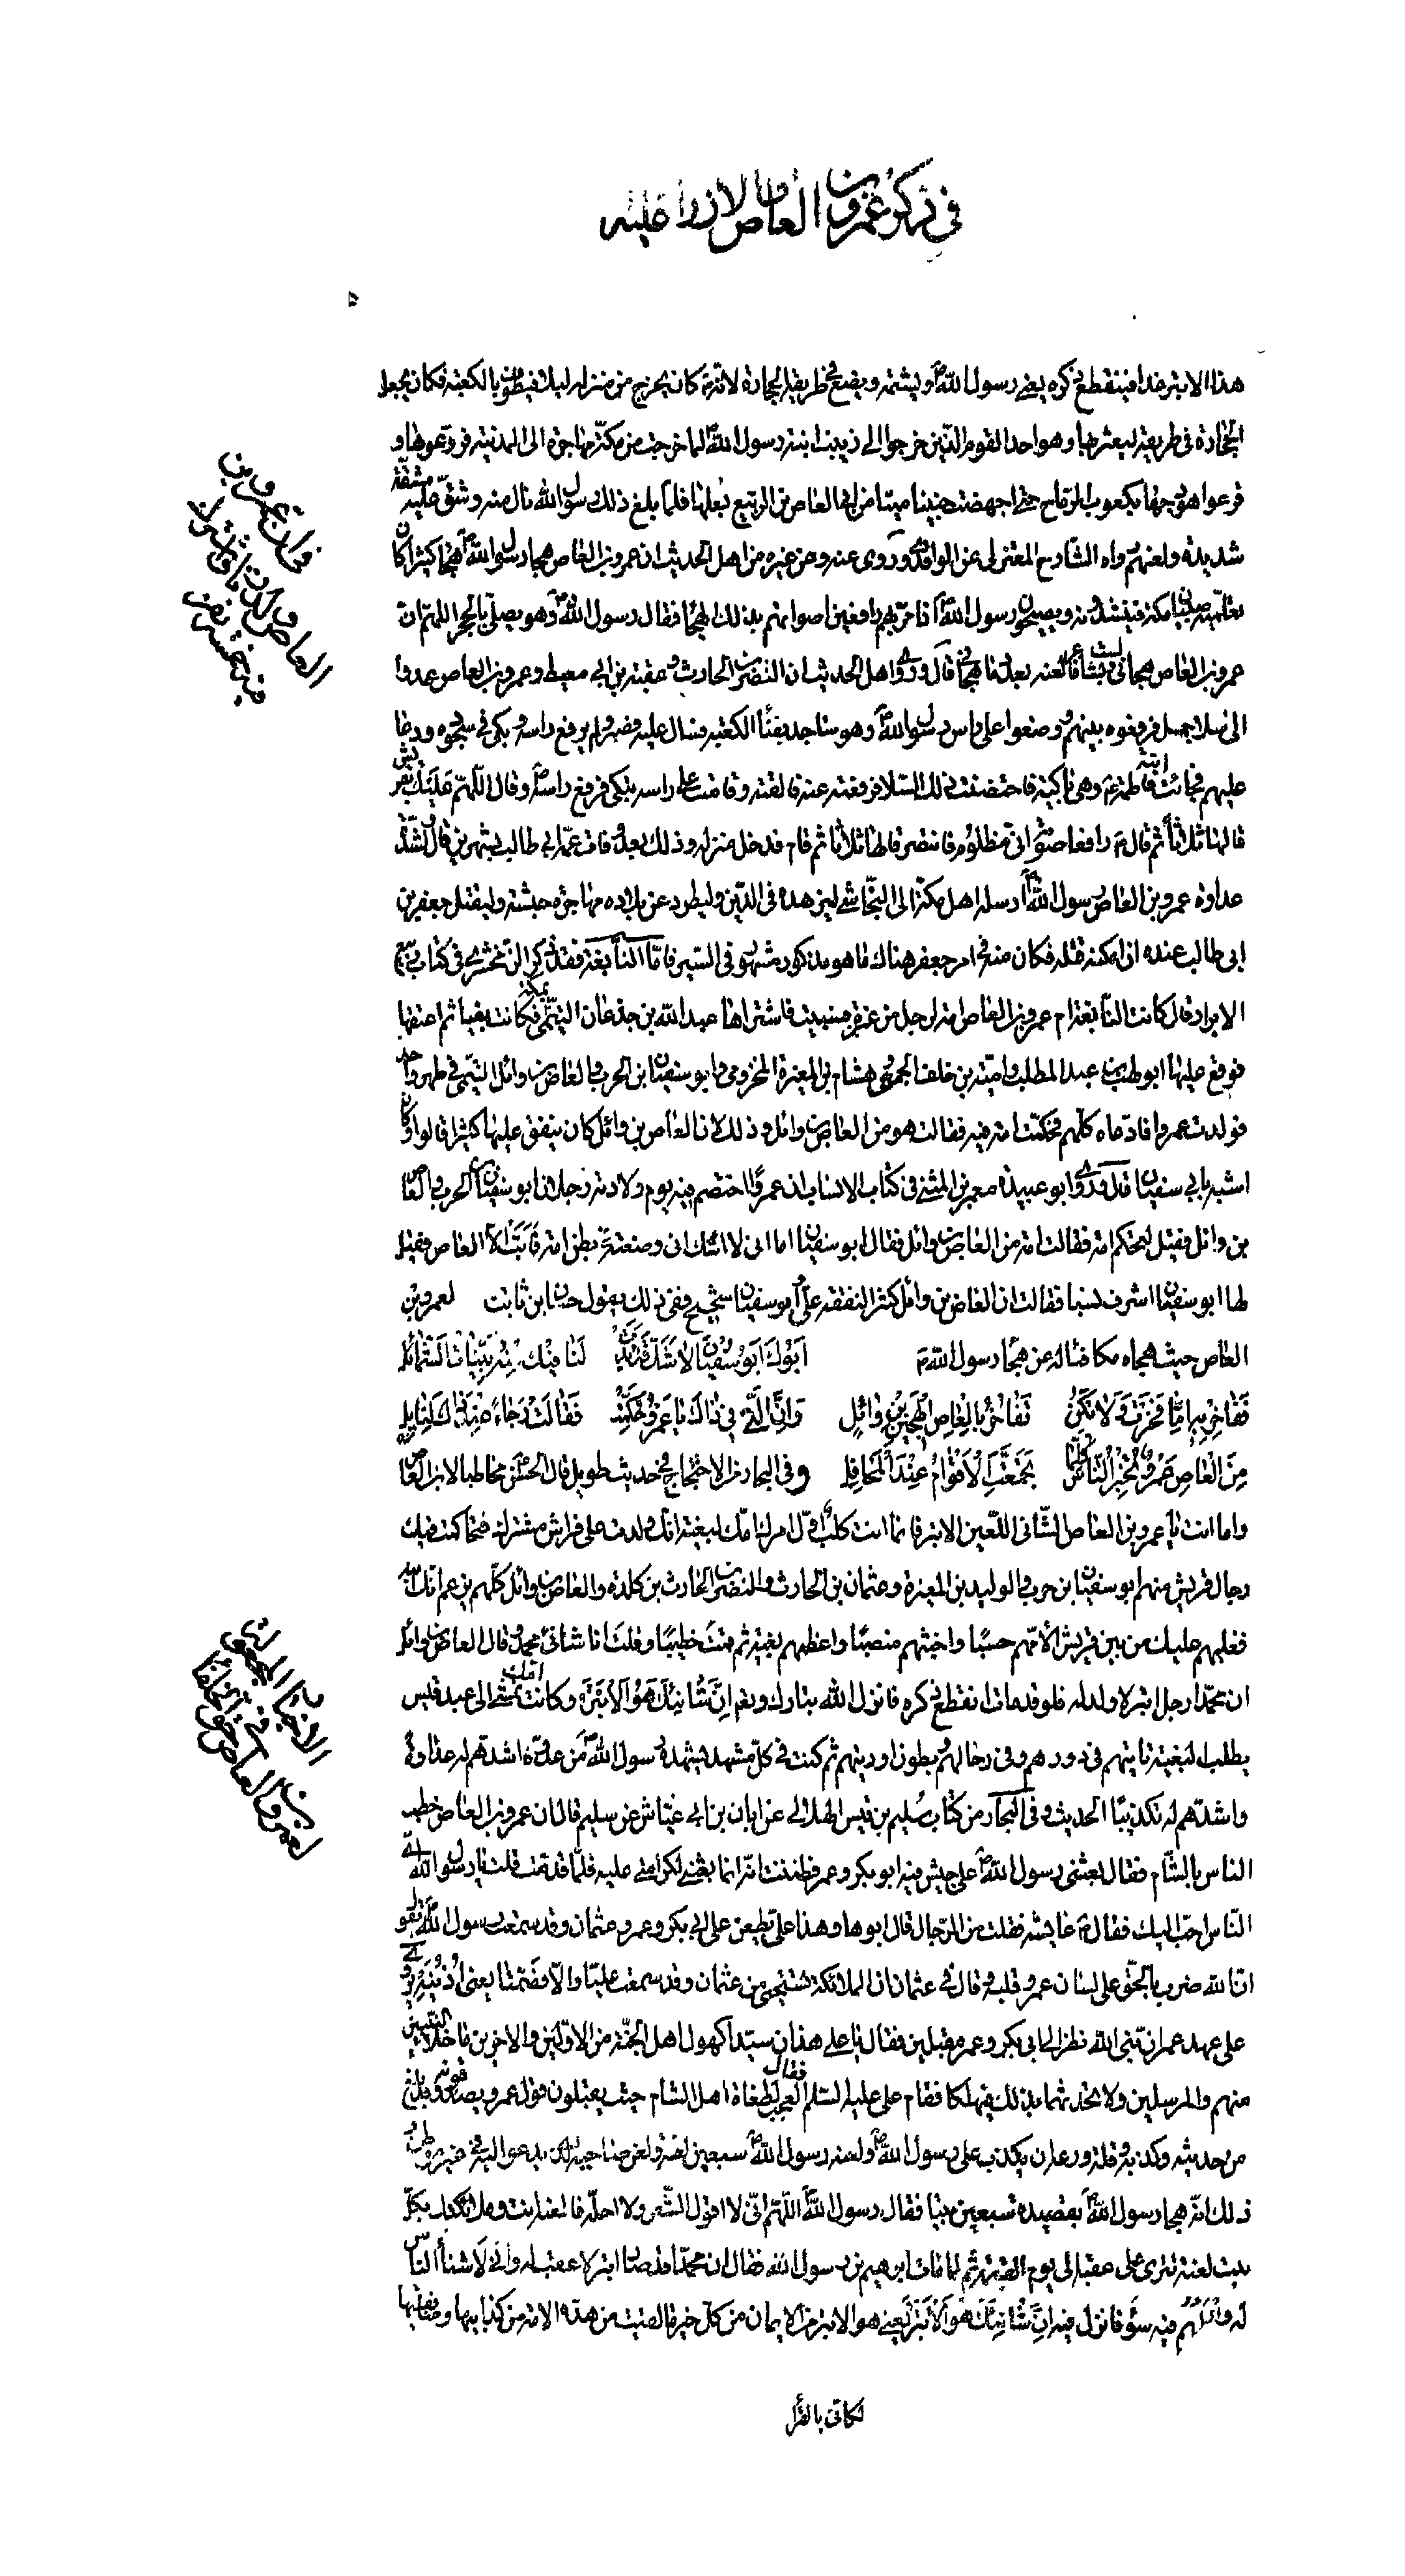 في ذكر عمرو بن العاص والازراء عليه
هذا الابتر غدا فينقطع ذكره يعنى رسول الله ص ويشتمه ويضع في طريقه الحجارة لانه كان يخرج من منزله ليلا فيطوف بالكعبة فكان يجعل
الحجارة في طريقه ليعثر بها وهو احد القوم الذين خرجوا الى زينب ابنة رسول الله ص لما خرجت من مكة مهاجرة الى المدينة فروعوها و
قرعوا هودجها بكعوب الرماح حتى اجهضت جنينا ميتا من ابى العاص بن الربيع بعلها فلما بلغ ذلك رسول الله نال منه وشق عليه مشقة
شديدة ولعنهم رواه الشارح المعتزلى عن الواقدى وروى عنه وعن غيره من اهل الحديث ان عمرو بن العاص هجا رسول الله ص هجاء كثيرا كان
تعلمه صبيان مكة فينشدونه ويصيحون رسول الله ص اذا مر بهم رافعين اصواتهم بذلك الهجاء فقال رسول الله ص وهو يصلى بالحجر اللهم ان
عمرو بن العاص هجانى ولست بشاعر فالعنه بعدد ما هجانى قال وروى اهل الحديث ان النضر بن الحارث وعقبة بن ابى معيط وعمرو بن العاص عمدوا
الى سلا جمل فرفعوه بينهم ووضعوا على راس رسول الله ص وهو ساجد بفناء الكعبة فسال عليه فصبر ولم يرفع راسه وبكى في سجوده ودعا
عليهم فجاءت ابنته فاطمة ع وهى باكية فاحتضنت ذلك السلا فرفعته عنه فالقته وقامت على راسه تبكى فرفع راسه ص وقال اللهم عليك بقريش
قالها ثلاثا ثم قال رافعا صوته انى مظلوم فانتصر قالها ثلاثا ثم قام فدخل منزله وذلك بعد وفات عمه ابى طالب بشهرين قال ولشدة
عداوة عمرو بن العاص رسول الله ص ارسله اهل مكة الى النجاشى ليزهده في الدين وليطرد عن بلاده مهاجرة حبشة وليقتل جعفر بن
ابى طالب عنده ان امكنه قتله فكان منه في امر جعفر هناك ما هو مذكور مشهور في السير فاما النابغة فقد ذكر الزمخشرى في كتاب ربيع
الابرار قال كانت النابغة ام عمرو بن العاص امة لرجل من عنزة فسبيت فاشتراها عبد الله بن جدعان التيمى بمكة فكانت بغيا ثم اعتقها
فوقع عليها ابو لهب بن عبد المطلب وامية بن خلف الجمحى وهشام بن المغيرة المخزومى وابو سفيان ابن الحرب والعاص بن وائل التيمى في طهر واحد
فولدت عمروا فادعاه كلهم فحكمت امه فيه فقالت هو من العاص بن وائل وذلك لان العاص بن وائل كان ينفق عليها كثيرا قالوا وكان
اشبه بابى سفيان قال وروى ابو عبيدة معمر بن المثنى في كتاب الانساب ان عمروا اختصم فيه يوم ولادته رجلان ابو سفيان بن الحرب والعاص
بن وائل فقيل لتحكم امه فقالت امه من العاص بن وائل فقال ابو سفيان اما انى لا اشك انى وضعته في بطن امه فابت الا العاص فقيل
لها ابو سفيان اشرف نسبا فقالت ان العاص بن وائل كثير النفقة على وابو سفيان شحيح ففى ذلك يقول حسان ابن ثابت لعمرو بن
العاص حيث هجاه مكافئا له عن هجاء رسول الله ص ابوك ابو سفيان لا شك قد بدت لنا فيك منه بينات الشمائل
ففاخر به اما فخرت ولا تكن تفاخر بالعاص الهجين بن وائل وان التى في ذاك يا عمرو حكمت فقالت رجاء عند ذاك لنائل
من العاص عمرو تخبر الناس كلما تجمعت الاقوام عند المحافل وفى البحار من الاحتجاج في حديث طويل قال الحسن مخاطبا لابن العاص
واما انت يا عمرو بن العاص الشانى اللعين الابتر فانما انت كلب اول امرك امك لبغية انك ولدت على فراش مشترك فتحاكمت فيك
رجال قريش منهم ابو سفيان ابن حرب والوليد بن المغيرة وعثمان بن الحارث والنضر بن الحارث بن كلدة والعاص بن وائل كلهم يزعم انك ابنه
فغلبهم عليك من بين قريش الأمهم حسبا واخبثهم منصبا واعظمهم بغية ثم قمت خطيبا وقلت انا شانئ محمد وقال العاص بن وائل
ان محمدا رجل ابتر لا ولد له فلو قد مات انقطع ذكره فانزل الله تبارك وتعالى ان شانئك هو الابتر وكانت امك تمشى الى عبد قيس
يطلب البغية تاتيهم في دورهم وفى رحالهم وبطون اوديتهم ثم كنت في كل مشهد يشهده رسول الله ص من عدوه اشدهم له عداوة
واشدهم له تكذيبا الحديث وفى البحار من كتاب سليم بن قيس الهلالى عن ابان بن ابى عياش عن سليم قال ان عمرو بن العاص خطب
الناس بالشام فقال بعثنى رسول الله ص على جيش فيه ابو بكر وعمر فظننت انه انما بعثنى لكرامتى عليه فلما قدمت قلت يا رسول الله اى
الناس احب اليك فقال عايشة فقلت من الرجال قال ابوها وهذا على يطعن على ابى بكر وعمر وعثمان وقد سمعت رسول الله ص يقول
ان الله ضرب بالحق على لسان عمر وقلبه وقال في عثمان ان الملائكة تستحيى من عثمان وقد سمعت عليا والا فصمتا يعنى اذنيه يروى
على عهد عمر ان نبى الله نظر الى ابى بكر وعمر مقبلين فقال يا على هذان سيدا كهول اهل الجنة من الاولين والاخرين ما خلا النبيين
منهم والمرسلين ولا تحدثهما بذلك فيهلكا فقام على عليه السلم فقال العجب لطغاة اهل الشام حيث يقبلون قول عمرو ويصدقونه وقد بلغ
من حديثه وكذبه وقلة ورعه ان يكذب على رسول الله ص ولعنه رسول الله ص سبعين لعنة ولعن صاحبه الذى يدعو اليه في غير موطن و
ذلك انه هجا رسول الله ص بقصيدة سبعين بيتا فقال رسول الله ص اللهم انى لا اقول الشعر ولا احله فالعنه انت وملائكتك بكل
بيت لعنة تترى على عقبه الى يوم القيمة ثم لما مات ابرهيم بن رسول الله فقال ان محمدا قد صار ابتر لا عقب له وانى لاشنأ الناس
له واقولهم فيه سوء فانزل فيه ان شانئك هو الابتر يعنى هو الابتر من الايمان من كل خير ما لقيت من هذه الامة من كذابيها ومنافقيها
لكانى بالقرا
العاص ولدت
الاحتجاج